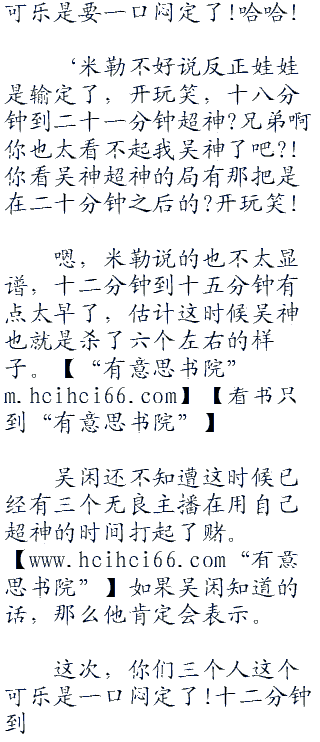 可乐是要一口闷定了!哈哈!
‘米勒不好说反正娃娃
是输定了，开玩笑，十八分
钟到二十一分钟超神?兄弟啊
你也太看不起我吴神了吧?!
你看吴神超神的局有那把是
在二十分钟之后的?开玩笑!
嗯，米勒说的也不太显
谱，十二分钟到十五分钟有
点太早了，估计这时候吴神
也就是杀了六个左右的样
子。【“有意思书院”
m.hcihci66.com】【看书只
到“有意思书院”】
吴闲还不知遭这时候已
经有三个无良主播在用自己
超神的时间打起了赌。
【www.hcihci66.com“有意
思书院”】如果吴闲知道的
话，那么他肯定会表示。
这次，你们三个人这个
可乐是一口闷定了!十二分钟
到